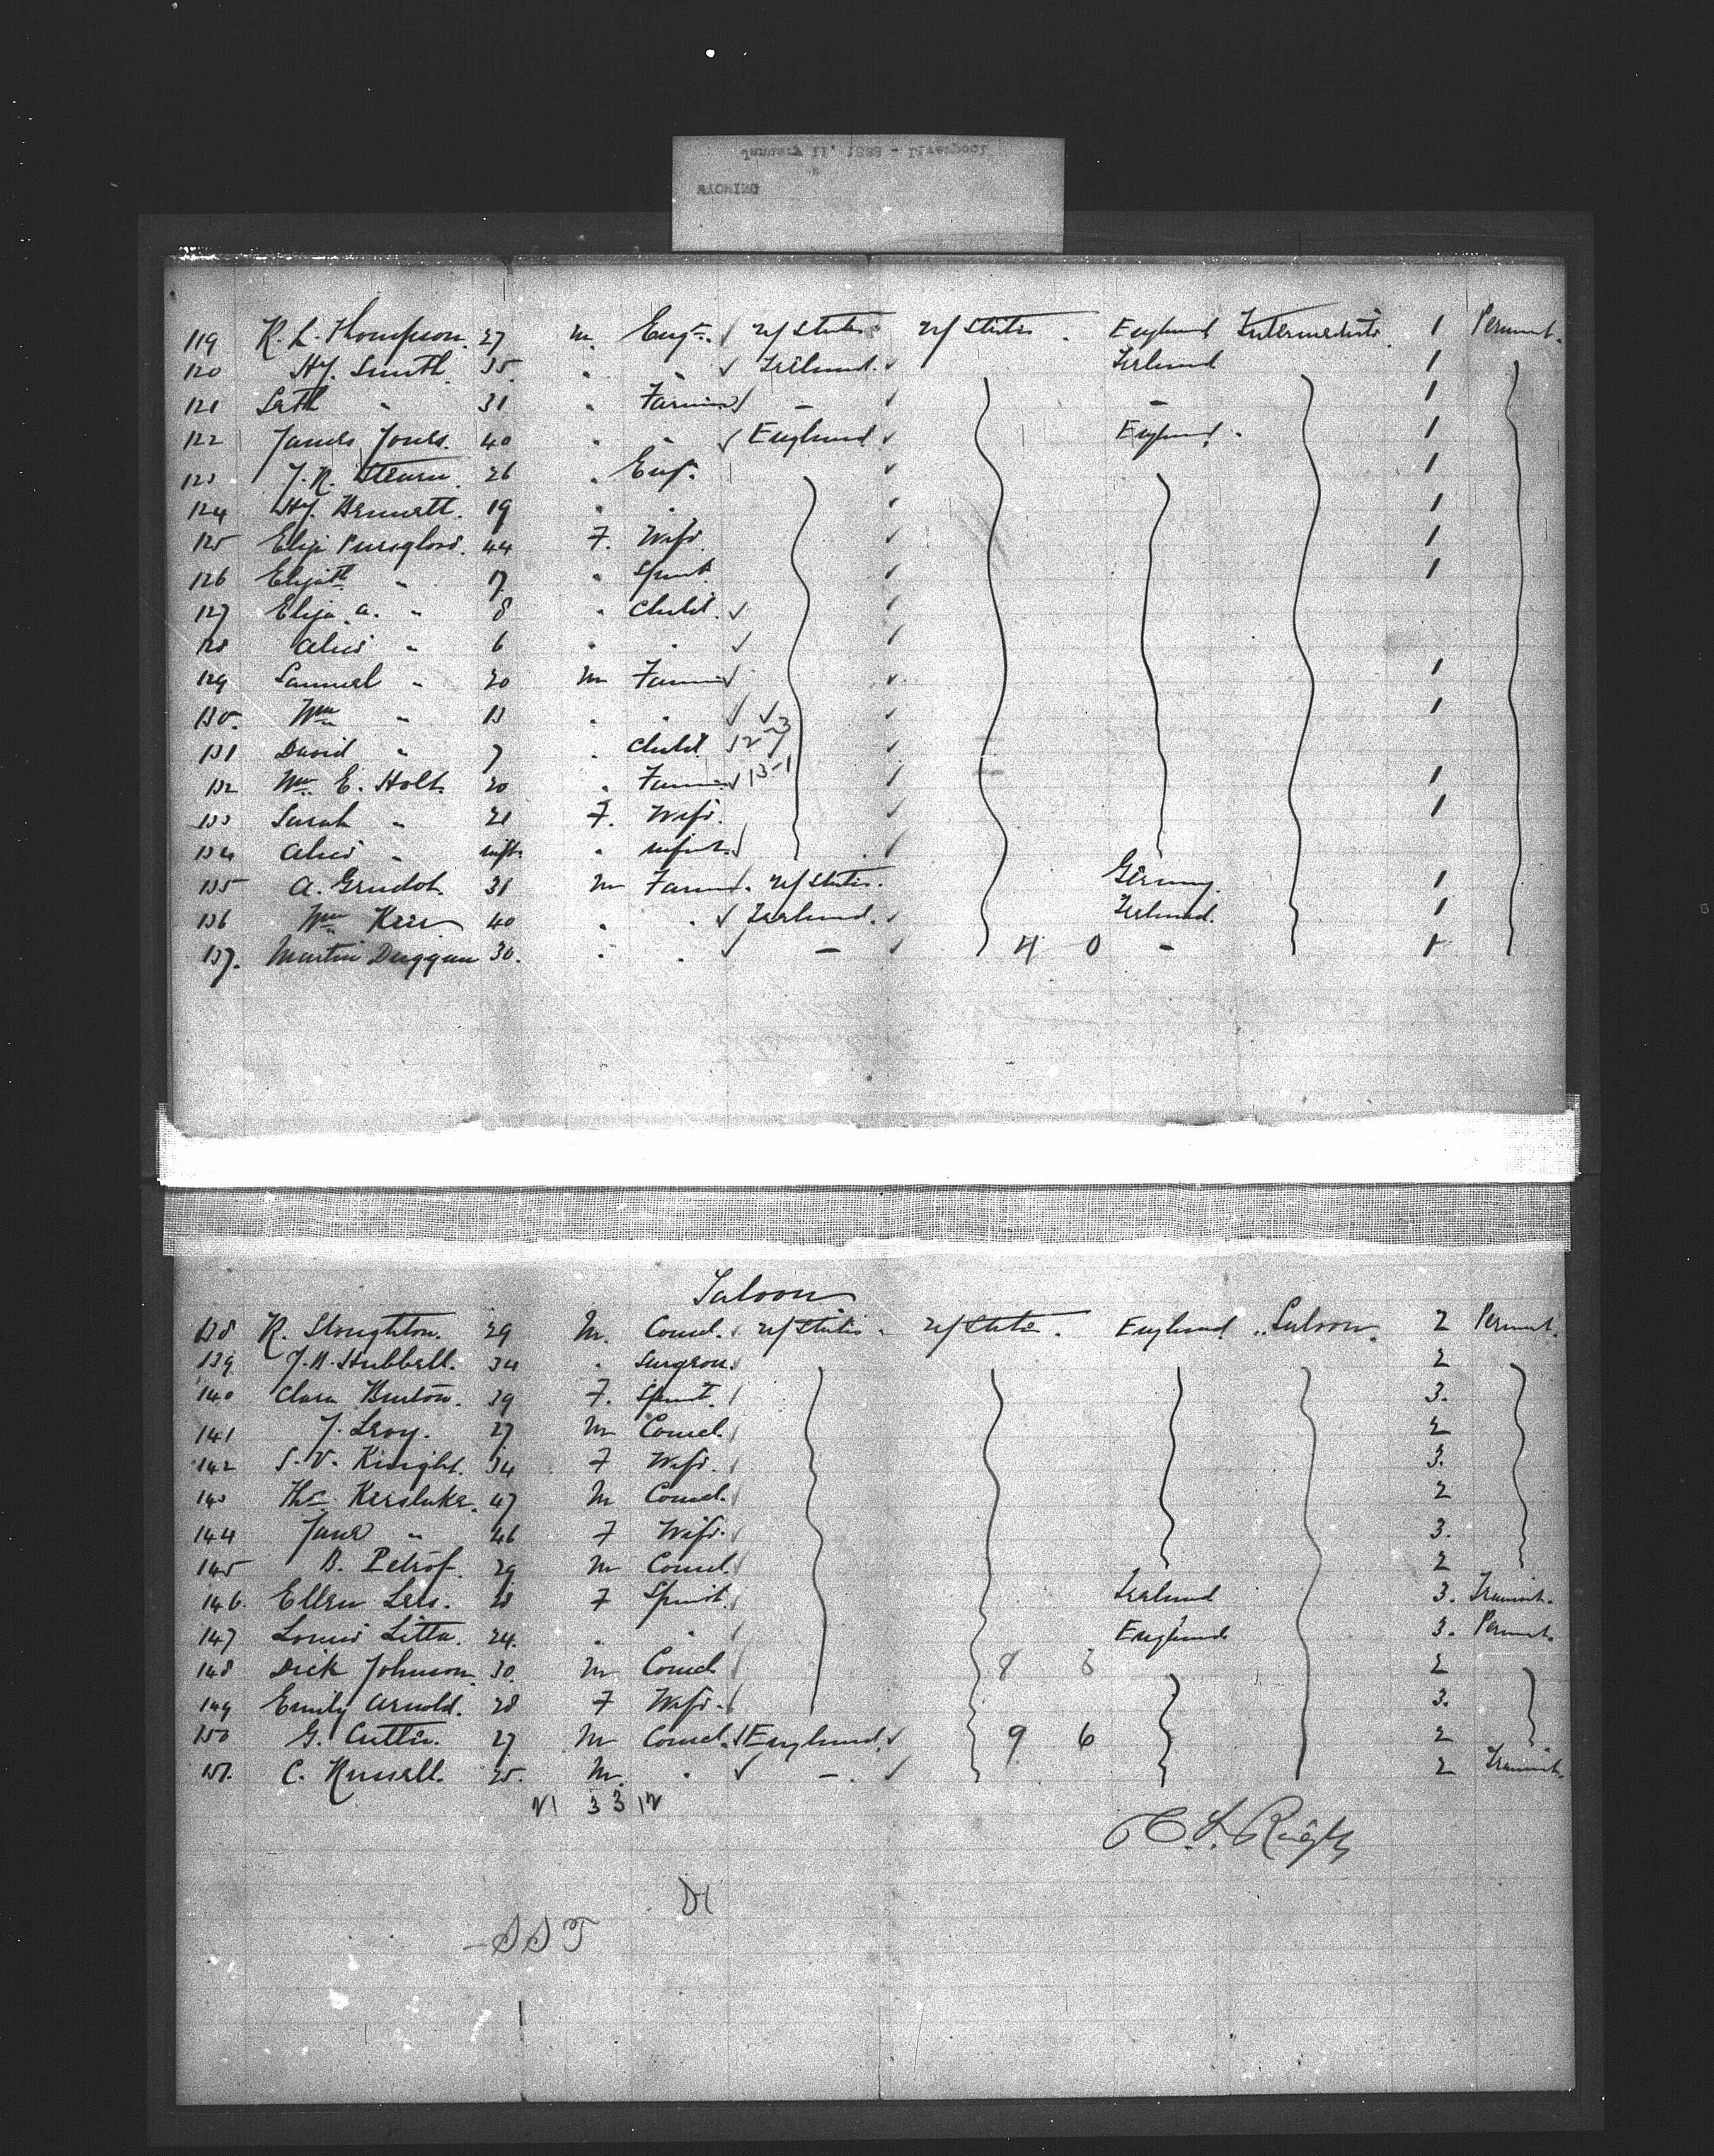 January 11, 1888 - Liverpool
WYOMING
119 R. L. Thompson. 27 M. Engr. ✓ U/States U/States. England Intermediate. 1 Permnt.
120 Hy. Smith 35. " " ✓ Ireland. ✓ Ireland 1
121 Seth " 31 " Farmer ✓ - ✓ - 1
122 James Jones. 40 " " ✓ England ✓ England. 1
123 J. R. Stearn. 26 " Engr. ✓ 1
124 Hy. Bennett. 19 " " ✓ 1
125 Eliz Pursglove. 44 F. Wife. ✓ 1
126 Elizth " 17 " Spinst. ✓ 1
127 Eliza. A. " 8 " Child. ✓ ✓
128 Alice " 6 " " ✓ ✓
129 Samuel " 20 M Farmer ✓ ✓ 1
130. Wm " 13 " " ✓ ✓ ✓ 1
131 David " 7 " Child 12-3 ✓
132 Wm. E. Holt. 20 " Farmer ✓ 13-1 ✓ 1
133 Sarah " 21 F. Wife. ✓ 1
134 Alice " inft. " infnt. ✓ ✓
135 A. Grudot. 31 M Farmr. U/States. Germany. 1
136 Wm Kerr 40 " " ✓ Ireland. ✓ Ireland. 1
137. Martin Duggan 30. " " ✓ - ✓ 4 0 - 1
Saloon
138 R. Stoughton. 29 M. Comcl. U/States U/States. England Saloon. 2 Permnt.
139 J. H. Hubbell. 34 " Surgeon. 2
140 Clara Burton. 39 F. Spinst. 3.
141 J. Leroy. 27 M Comcl. 2
142 S. V. Knight. 34 F Wife. 3.
143 Ths. Kerslake. 47 M Comcl. 2
144 Jane " 46 F Wife. 3.
145 B. Petrof. 29 M Comcl. 2
146. Ellen Lees. 28 F Spinst. Ireland 3. Transit.
147 Louis Litta. 24. " " England 3. Permnt.
148 Dick Johnson 30. M Comcl. 8 6 2
149 Emily Arnold. 28 F Wife. 3.
150 G. Cutler. 27 M Comcl. ✓ England ✓ 9 6 2
151. C. Russell. 25. M. " ✓ - ✓ 2 Transit.
21 33 12
C. L. Rigby
SST